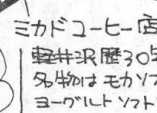 ミカドコーヒー店
軽井沢歴30年
名物はモカソフ
ヨーグルトソフト